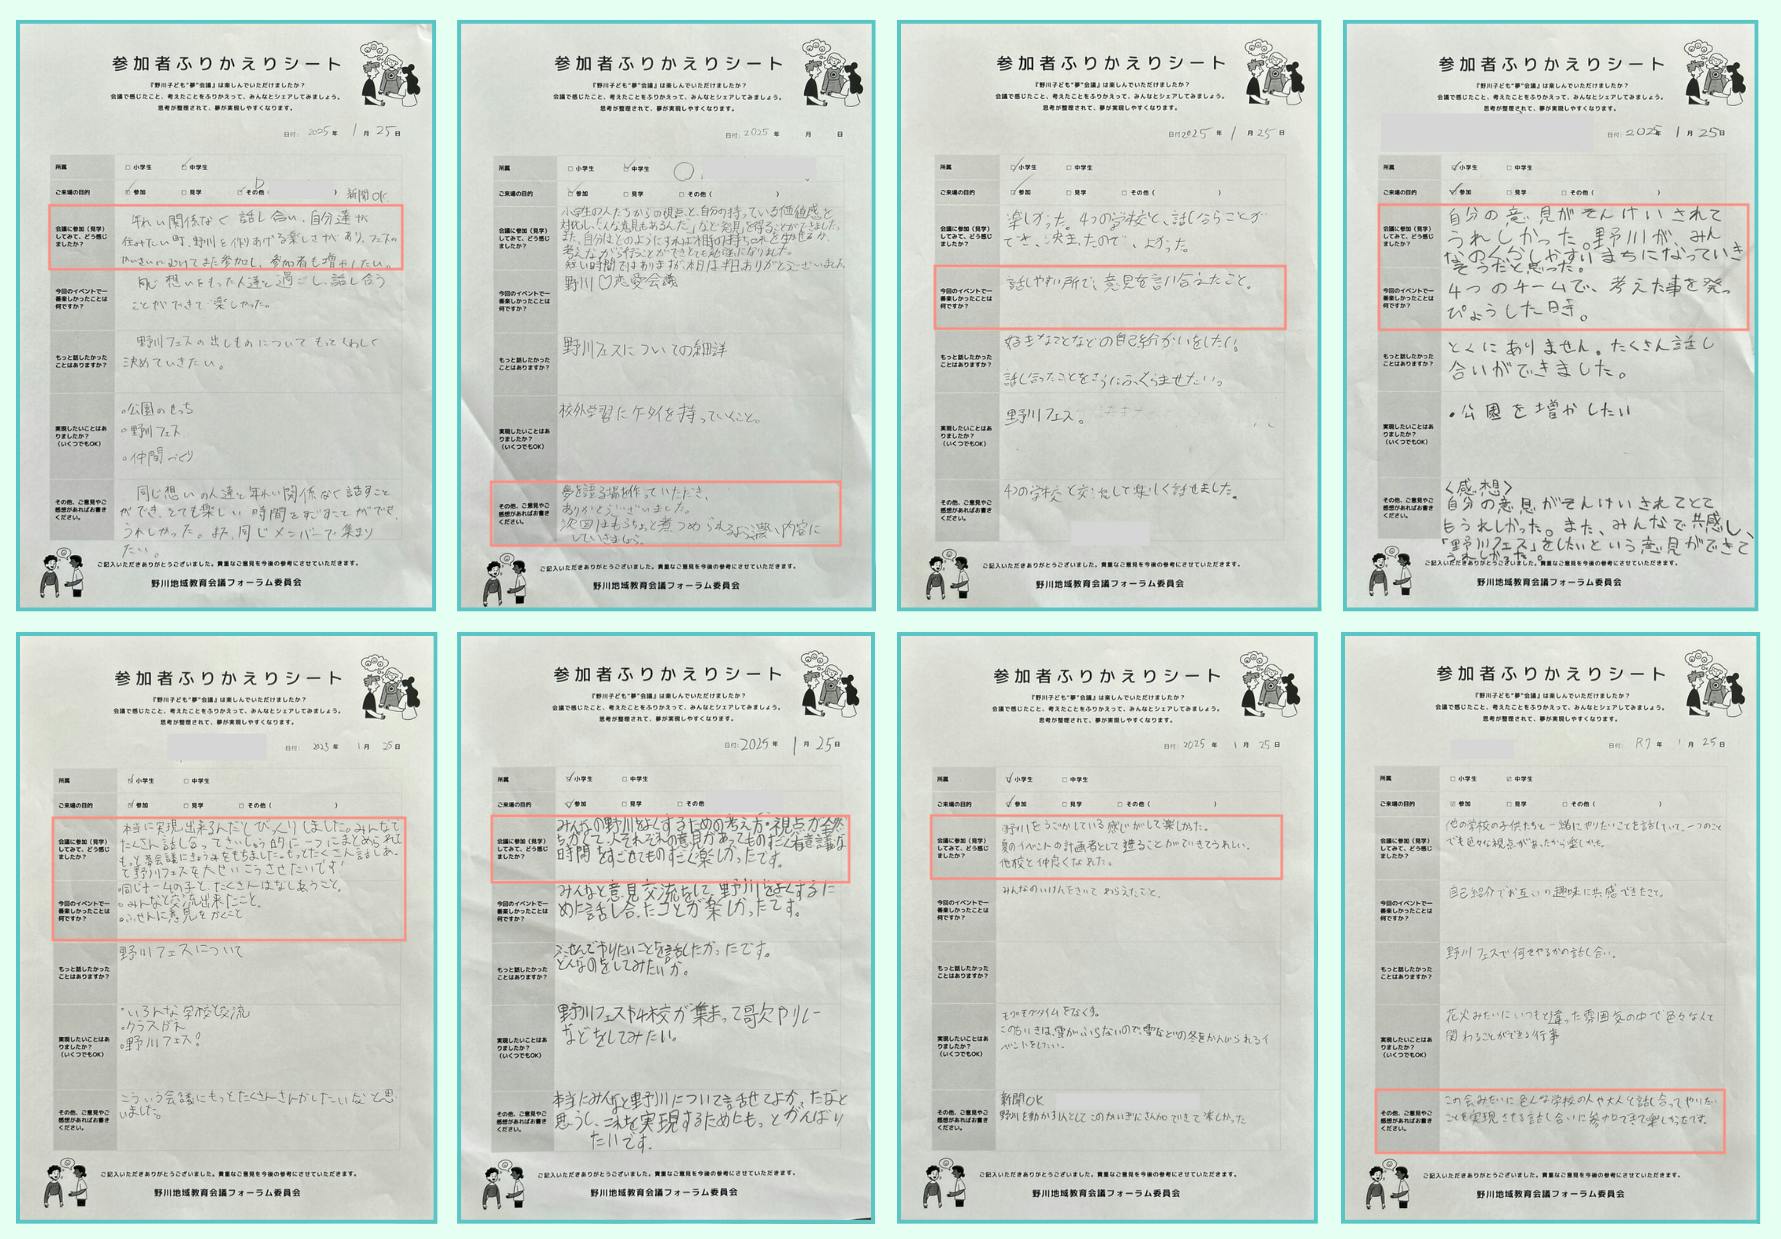 参加者ふりかえりシート
『野川子ども"夢"会議』は楽しんでいただけましたか？
会議で感じたこと、考えたことをふりかえって、みんなとシェアしてみましょう。
思考が整理されて、夢が実現しやすくなります。
日付: 2025年 1月25日
所属 □小学生 □中学生
ご来場の目的 □参加 □見学 □その他( ) 新聞OK
会議に参加（見学）してみて、どう感じましたか？
年れい関係なく話し合い、自分達が
住みたい町、野川を作りあげる楽しさがあり、フェスの
かいさいにむけてまた参加し、参加者も増やしたい。
今回のイベントで一番楽しかったことは何ですか？
同じ想いをもった人達と過ごし、話し合う
ことができて楽しかった。
もっと話したかったことはありますか？
野川フェスの出しものについてもってくわしく
決めていきたい。
実現したいことはありましたか？（いくつでもOK）
。公園のせっち
。野川フェス
。仲間づくり
その他、ご意見やご感想があればお書きください。
同じ想いの人達と年れい関係なく話すこと
ができ、とても楽しい時間をすごすことができ、
うれしかった。また、同じメンバーで集まり
たい。
ご記入いただきありがとうございました。貴重なご意見を今後の参考にさせていただきます。
野川地域教育会議フォーラム委員会
参加者ふりかえりシート
『野川子ども"夢"会議』は楽しんでいただけましたか？
会議で感じたこと、考えたことをふりかえって、みんなとシェアしてみましょう。
思考が整理されて、夢が実現しやすくなります。
日付: 2025年 月 日
所属 □小学生 □中学生
ご来場の目的 □参加 □見学 □その他( )
会議に参加（見学）してみて、どう感じましたか？
小学生の人たちからの視点と、自分の持っている価値感を
対比し、「こんな意見もあるんだ」など発見を得ることができました。
また、自分はどのようにすれば才期の持ち
考えながら行うことができとても勉強になりました。
短い時間ではありますが、本日は半日ありがとうございました。
今回のイベントで一番楽しかったことは何ですか？
野川♡恋愛会議
もっと話したかったことはありますか？
野川フェスについての細詳
実現したいことはありましたか？（いくつでもOK）
校外学習にケータイを持っていくこと。
その他、ご意見やご感想があればお書きください。
夢を語る場を作っていただき、
ありがとうございました。
次回はもうちょっと煮つめられるよう濃い内容に
していきましょう。
ご記入いただきありがとうございました。貴重なご意見を今後の参考にさせていただきます。
野川地域教育会議フォーラム委員会
参加者ふりかえりシート
『野川子ども"夢"会議』は楽しんでいただけましたか？
会議で感じたこと、考えたことをふりかえって、みんなとシェアしてみましょう。
思考が整理されて、夢が実現しやすくなります。
日付: 2025年 1月25日
所属 □小学生 □中学生
ご来場の目的 □参加 □見学 □その他( )
会議に参加（見学）してみて、どう感じましたか？
楽しかった。4つの学校と、話しならことが
でき、決まったので、よかった。
今回のイベントで一番楽しかったことは何ですか？
話しやすい所で、意見を言い合えたこと。
もっと話したかったことはありますか？
好きなことなどの自己紹かいをしたい。
話し合ったことをさらにふくらませたい。
実現したいことはありましたか？（いくつでもOK）
野川フェス。
その他、ご意見やご感想があればお書きください。
4つの学校と交流して楽しく話せました。
ご記入いただきありがとうございました。貴重なご意見を今後の参考にさせていただきます。
野川地域教育会議フォーラム委員会
参加者ふりかえりシート
『野川子ども"夢"会議』は楽しんでいただけましたか？
会議で感じたこと、考えたことをふりかえって、みんなとシェアしてみましょう。
思考が整理されて、夢が実現しやすくなります。
日付: 2025年 1月25日
所属 □小学生 □中学生
ご来場の目的 □参加 □見学 □その他( )
会議に参加（見学）してみて、どう感じましたか？
自分の意見がそんけいされて
うれしかった。野川が、みん
なのくらしやすいまちになっていき
そうだと思った。
今回のイベントで一番楽しかったことは何ですか？
4つのチームで、考えた事を発っ
ぴょうした時。
もっと話したかったことはありますか？
とくにありません。たくさん話し
合いができました。
実現したいことはありましたか？（いくつでもOK）
・公園を増かしたい
その他、ご意見やご感想があればお書きください。
〈感想〉
自分の意見がそんけいされてとて
もうれしかった。また、みんなで共感し、
「野川フェス」をしたいという意見ができて
うれしかった。
ご記入いただきありがとうございました。貴重なご意見を今後の参考にさせていただきます。
野川地域教育会議フォーラム委員会
参加者ふりかえりシート
『野川子ども"夢"会議』は楽しんでいただけましたか？
会議で感じたこと、考えたことをふりかえって、みんなとシェアしてみましょう。
思考が整理されて、夢が実現しやすくなります。
日付: 2023年 1月 25日
所属 □小学生 □中学生
ご来場の目的 □参加 □見学 □その他( )
会議に参加（見学）してみて、どう感じましたか？
本当に実現出来るんだとびっくりしました。みんなで
たくさん話し合ってさいしょう的に一つにまとめられて
もっと夢会議にきょうみをもちました。もってたくさん話しあっ
て野川フェスを大せいこうさせたいです！
今回のイベントで一番楽しかったことは何ですか？
。同じチームの子と、たくさんはなしあうこと。
。みんなと交流出来たこと。
。ふせんに意見をかくこと
もっと話したかったことはありますか？
野川フェスについて
実現したいことはありましたか？（いくつでもOK）
・いろんな学校と交流
。クラスがえ
。野川フェス！
その他、ご意見やご感想があればお書きください。
こういう会議にもっとたくさんさんかしたいなと思
いました。
ご記入いただきありがとうございました。貴重なご意見を今後の参考にさせていただきます。
野川地域教育会議フォーラム委員会
参加者ふりかえりシート
『野川子ども"夢"会議』は楽しんでいただけましたか？
会議で感じたこと、考えたことをふりかえって、みんなとシェアしてみましょう。
思考が整理されて、夢が実現しやすくなります。
日付: 2025年 1月25日
所属 □小学生 □中学生
ご来場の目的 □参加 □見学 □その他
会議に参加（見学）してみて、どう感じましたか？
みんなの野川をよくするための考え方・視点が全然
ちがくて、人それぞれの意見があってものすごく有意議な
時間をすごせてものすごく楽しかったです。
今回のイベントで一番楽しかったことは何ですか？
みんなと意見交流をして、野川をよくするた
めに話し合ったコトが楽しかったです。
もっと話したかったことはありますか？
ふせんでやりたいことを話したかったです。
どんなのをしてみたいか。
実現したいことはありましたか？（いくつでもOK）
野川フェスや4校が集まって歌穴やリレー
などをしてみたい。
その他、ご意見やご感想があればお書きください。
本当にみんなと野川について話せてよかったなと
思うし、これを実現するためにもっとがんばり
たいです。
ご記入いただきありがとうございました。貴重なご意見を今後の参考にさせていただきます。
野川地域教育会議フォーラム委員会
参加者ふりかえりシート
『野川子ども"夢"会議』は楽しんでいただけましたか？
会議で感じたこと、考えたことをふりかえって、みんなとシェアしてみましょう。
思考が整理されて、夢が実現しやすくなります。
日付: 2025年 1月 25日
所属 □小学生 □中学生
ご来場の目的 □参加 □見学 □その他( )
会議に参加（見学）してみて、どう感じましたか？
野川をうごかしている感じがして楽しかた。
夏のイベントの計画者として進ることができてうれしい。
他校と仲良くなれた。
今回のイベントで一番楽しかったことは何ですか？
みんなのいけんをきいてもらえたこと。
もっと話したかったことはありますか？
実現したいことはありましたか？（いくつでもOK）
モグモグタイムをなくす。
このちいきは、雪がふらないので、雪などの冬をかんじられるイ
ベントをしたい。
その他、ご意見やご感想があればお書きください。
新聞OK
野川を動かす1人としてこのかいぎにさんかできて楽しかった
ご記入いただきありがとうございました。貴重なご意見を今後の参考にさせていただきます。
野川地域教育会議フォーラム委員会
参加者ふりかえりシート
『野川子ども"夢"会議』は楽しんでいただけましたか？
会議で感じたこと、考えたことをふりかえって、みんなとシェアしてみましょう。
思考が整理されて、夢が実現しやすくなります。
日付: R7年 1月 25日
所属 □小学生 □中学生
ご来場の目的 □参加 □見学 □その他( )
会議に参加（見学）してみて、どう感じましたか？
他の学校の子供たちと一緒にやりたいことを話していて、一つのこと
でも色々な視点があったから楽しかった。
今回のイベントで一番楽しかったことは何ですか？
自己紹介でお互いの趣味に共感できたこと。
もっと話したかったことはありますか？
野川フェスで何をやるかの話し合い。
実現したいことはありましたか？（いくつでもOK）
花火みたいにいつもと違った雰囲気の中で色々な人と
関わることができる行事
その他、ご意見やご感想があればお書きください。
この会みたいに色んな学校の人や大人と話し合ってやりたい
ことを実現させる話し合いに参加できて楽しかったです。
ご記入いただきありがとうございました。貴重なご意見を今後の参考にさせていただきます。
野川地域教育会議フォーラム委員会